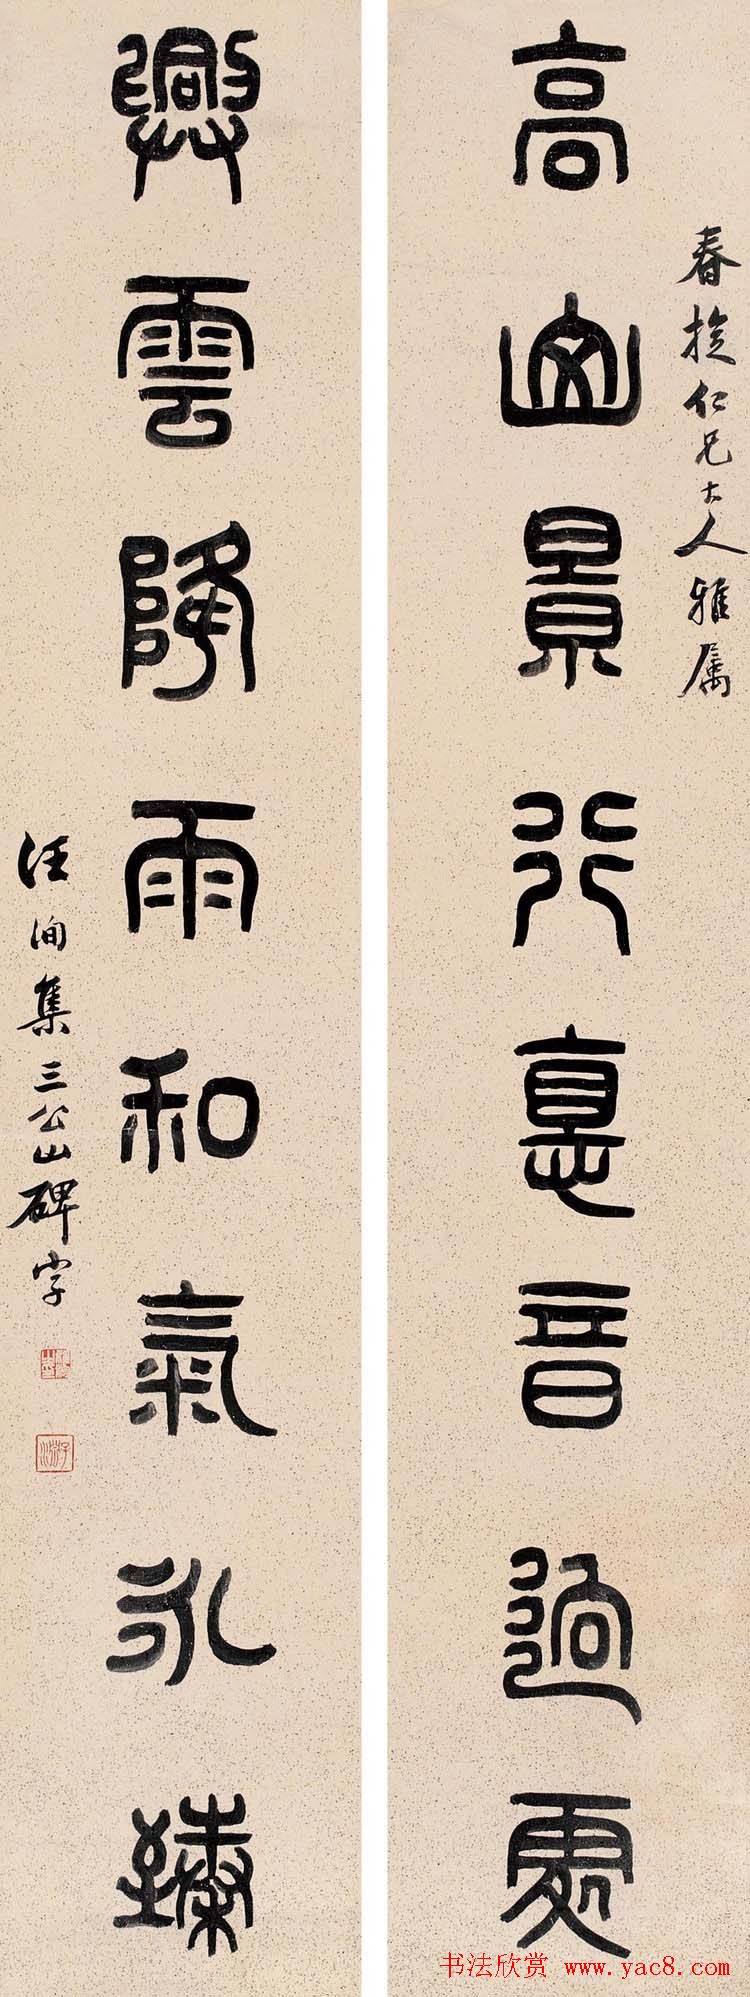 春仁兄大人雅属
高山景行惪音逈
興雲降雨和氣永臻
汪洵集三公山碑字
书法欣赏 www.yac8.com